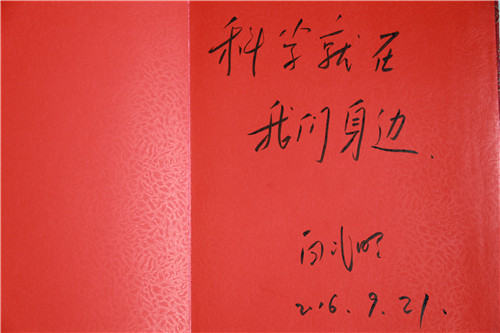 科学就在
我们身边.
2016.9.21.